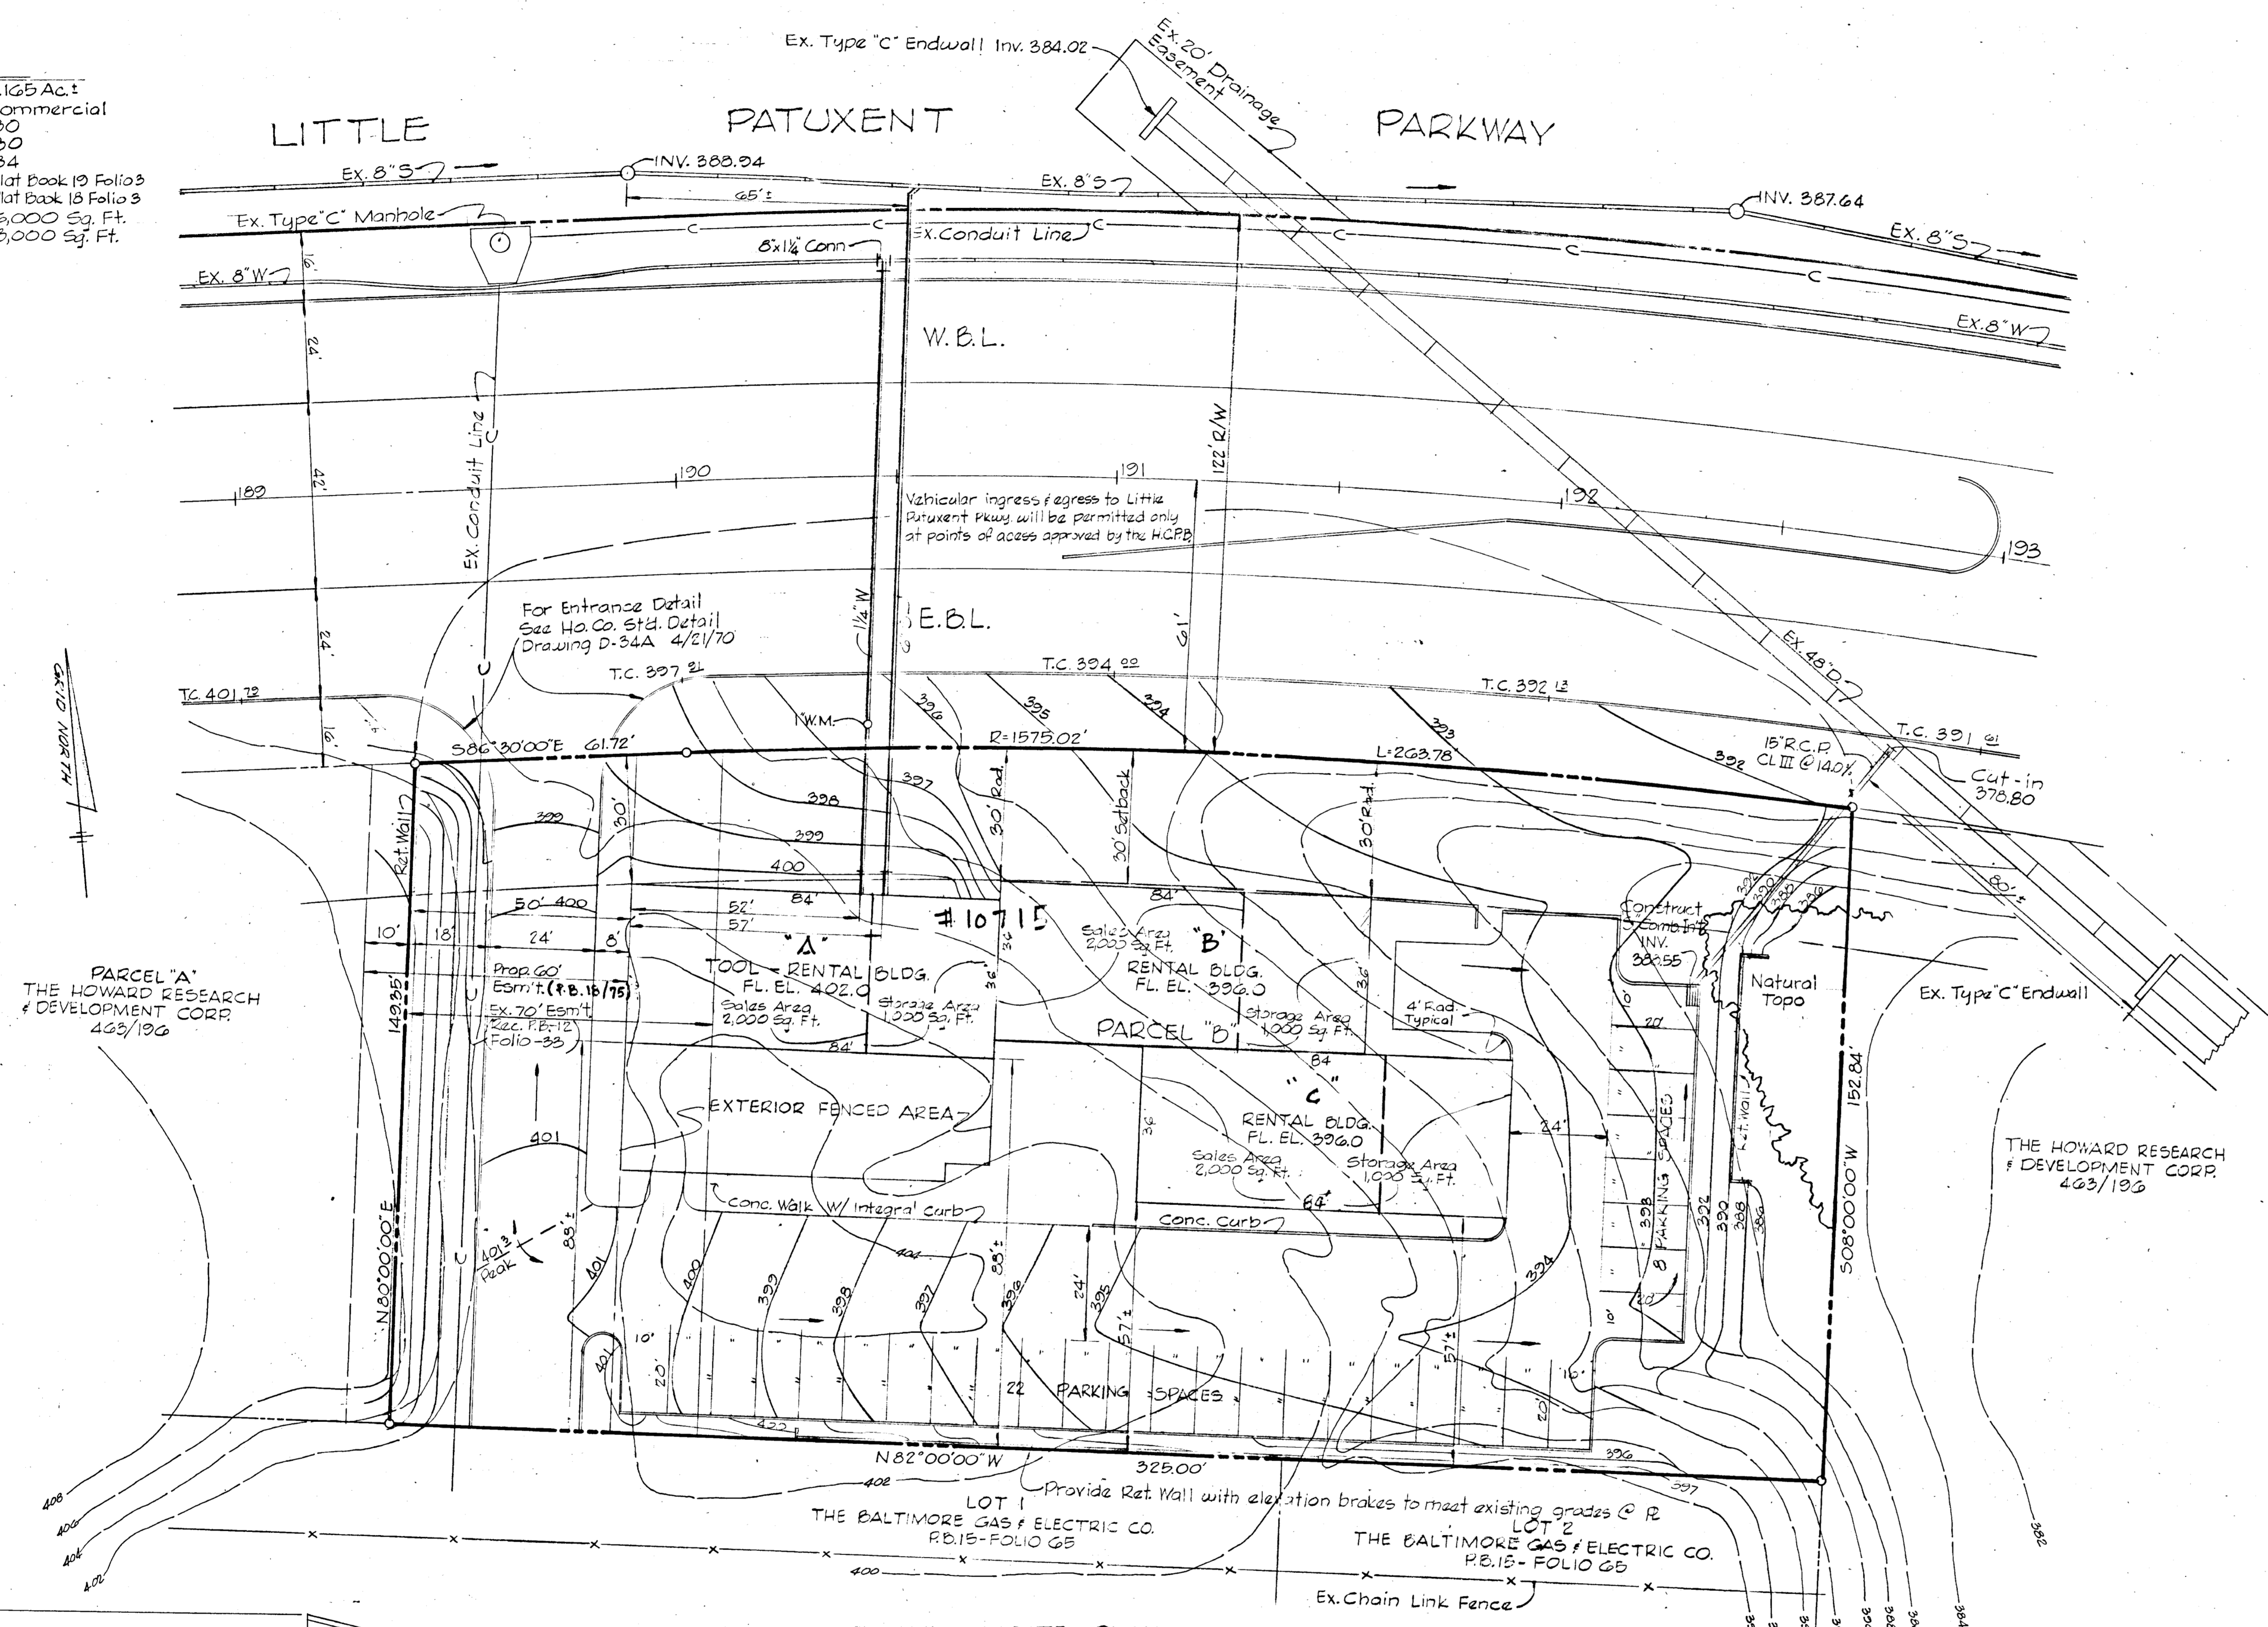 .165 Ac.±
ommercial
30
30
34
lat Book 19 Folio 3
lat Book 18 Folio 3
,000 Sq. Ft.
,000 Sq. Ft.
Ex. Type "C" Endwall Inv. 384.02
Ex. 20' Drainage
Easement
LITTLE PATUXENT PARKWAY
Ex. 8"S
INV. 388.94
Ex. 8"S
INV. 387.64
Ex. 8"S
65'±
Ex. Type "C" Manhole
8"x1¼" Conn
Ex. Conduit Line
C C C C C
Ex. 8"W
Ex. 8"W
16'
24'
42'
24'
16'
W.B.L.
Ex. Conduit Line
C
122' R/W
189
190
191
192
193
Vehicular ingress & egress to Little
Patuxent Pkwy. will be permitted only
at points of acess approved by the H.C.P.B.
1¼"W
61'
E.B.L.
For Entrance Detail
See Ho. Co. Std. Detail
Drawing D-34A 4/21/70
Ex. 48"D.
GRID NORTH
T.C. 401.79
T.C. 397.21
T.C. 394.00
T.C. 392.13
T.C. 391.61
396
395
394
393
392
1"W.M.
S86°30'00"E 61.72'
R=1575.02'
L=263.78'
15"R.C.P.
CL III @ 14.0%
Cut-in
378.80
80'±
Ret. Wall
30'
30' Rad.
30' Setback
30' Rad.
397
398
399
399
400
392
390
388
386
50' 400
52'
57'
84'
#10715
84'
10'
18'
24'
8'
36'
36'
36'
Construct
5" Comb. In'l.
INV.
380.55
"A"
TOOL - RENTAL BLDG.
FL. EL. 402.0
Sales Area
2,000 Sq. Ft.
Storage Area
1,000 Sq. Ft.
84'
Sales Area
2,000 Sq. Ft.
"B"
RENTAL BLDG.
FL. EL. 396.0
Storage Area
1,000 Sq. Ft.
PARCEL "B"
84
4' Rad.
Typical
Natural
Topo
Ex. Type "C" Endwall
PARCEL "A"
THE HOWARD RESEARCH
& DEVELOPMENT CORP.
463/196
Prop. 60'
Esm't. (P.B. 18/75)
Ex. 70' Esm't.
Rec. P.B.-12
Folio-33
149.35'
N80°00'00"E
C
EXTERIOR FENCED AREA
401
"C"
RENTAL BLDG.
FL. EL. 396.0
36'
Sales Area
2,000 Sq. Ft.
Storage Area
1,000 Sq. Ft.
84'
24'
10'
20'
8 PARKING SPACES
Ret. Wall
152.84'
S08°00'00"W
THE HOWARD RESEARCH
& DEVELOPMENT CORP.
463/196
Conc. Walk W/ Integral Curb
Conc. Curb
401.3
Peak
88'±
401
400
399
398
397
396
395
394
404
88'±
24'
57'±
57'±
398
392
390
388
386
20'
10'
10'
401
20'
22 PARKING SPACES
10'
20'
400
396
397
N82°00'00"W 325.00'
402
Provide Ret. Wall with elevation brakes to meet existing grades @ PL
LOT 1
THE BALTIMORE GAS & ELECTRIC CO.
P.B.15-FOLIO 65
LOT 2
THE BALTIMORE GAS & ELECTRIC CO.
P.B.15-FOLIO 65
400
Ex. Chain Link Fence
408
406
404
402
382
384